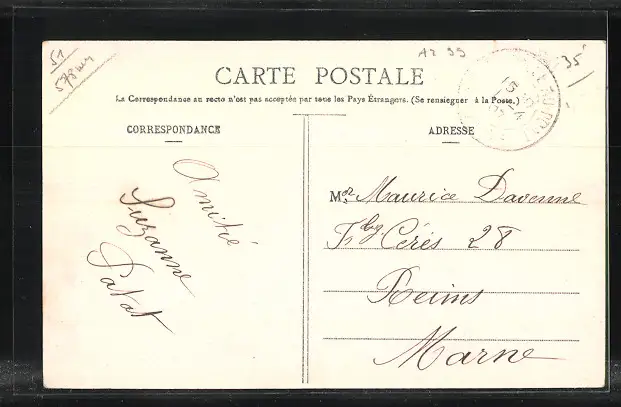 51
578
AZ 99
35
CARTE POSTALE
La Correspondance au recto n'est pas acceptée par tous les Pays Étrangers. (Se renseigner à la Poste.)
CORRESPONDANCE
ADRESSE
Amitié
Suzanne
Patat
Mr Maurice Davenne
Fbg Cérès 28
Reims
Marne